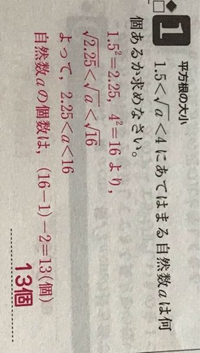 1
平方根の大小
1.5<√a<4にあてはまる自然数aは何
個あるか求めなさい。
1.5²=2.25, 4²=16より,
√2.25<√a<√16
よって, 2.25<a<16
自然数aの個数は, (16−1)−2=13(個)
13個